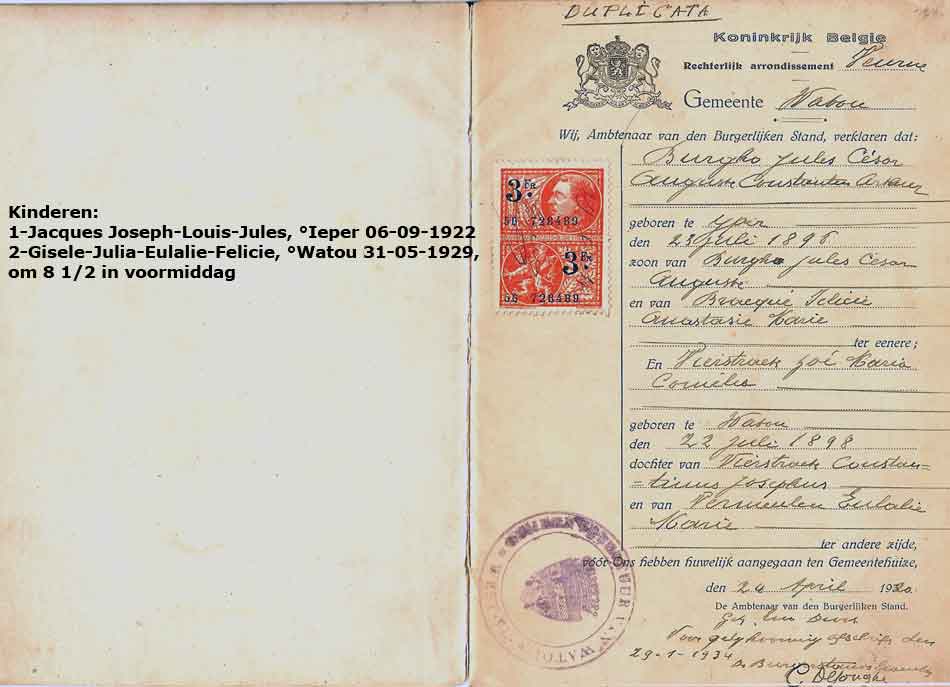 Kinderen:
1-Jacques Joseph-Louis-Jules, °Ieper 06-09-1922
2-Gisele-Julia-Eulalie-Felicie, °Watou 31-05-1929,
om 8 1/2 in voormiddag
DUPLÈCATA
Koninkrijk Belgie
Rechterlijk arrondissement Veurne
Gemeente Watou
Wij, Ambtenaar van den Burgerlijken Stand, verklaren dat:
Burgho Jules César
Auguste Constantin
geboren te Yper
den 25 Juli 1898
zoon van Burgho Jules César
Auguste
en van Felicie
Anastasie Marie
ter eenere;
En Vierstraek Zoé Maria
Cornélie
geboren te Watou
den 22 Juli 1898
dochter van Vierstraek Constan=
=tinus Josephus
en van Vermeulen Eulalie
Marie
ter andere zijde,
vóór Ons hebben huwelijk aangegaan ten Gemeentehuize,
den 24 April 1920
De Ambtenaar van den Burgerlijken Stand.
Voor afschrift den
29-1-1934
3 Fr
56 728489
3 Fr
56 728489
WATOU